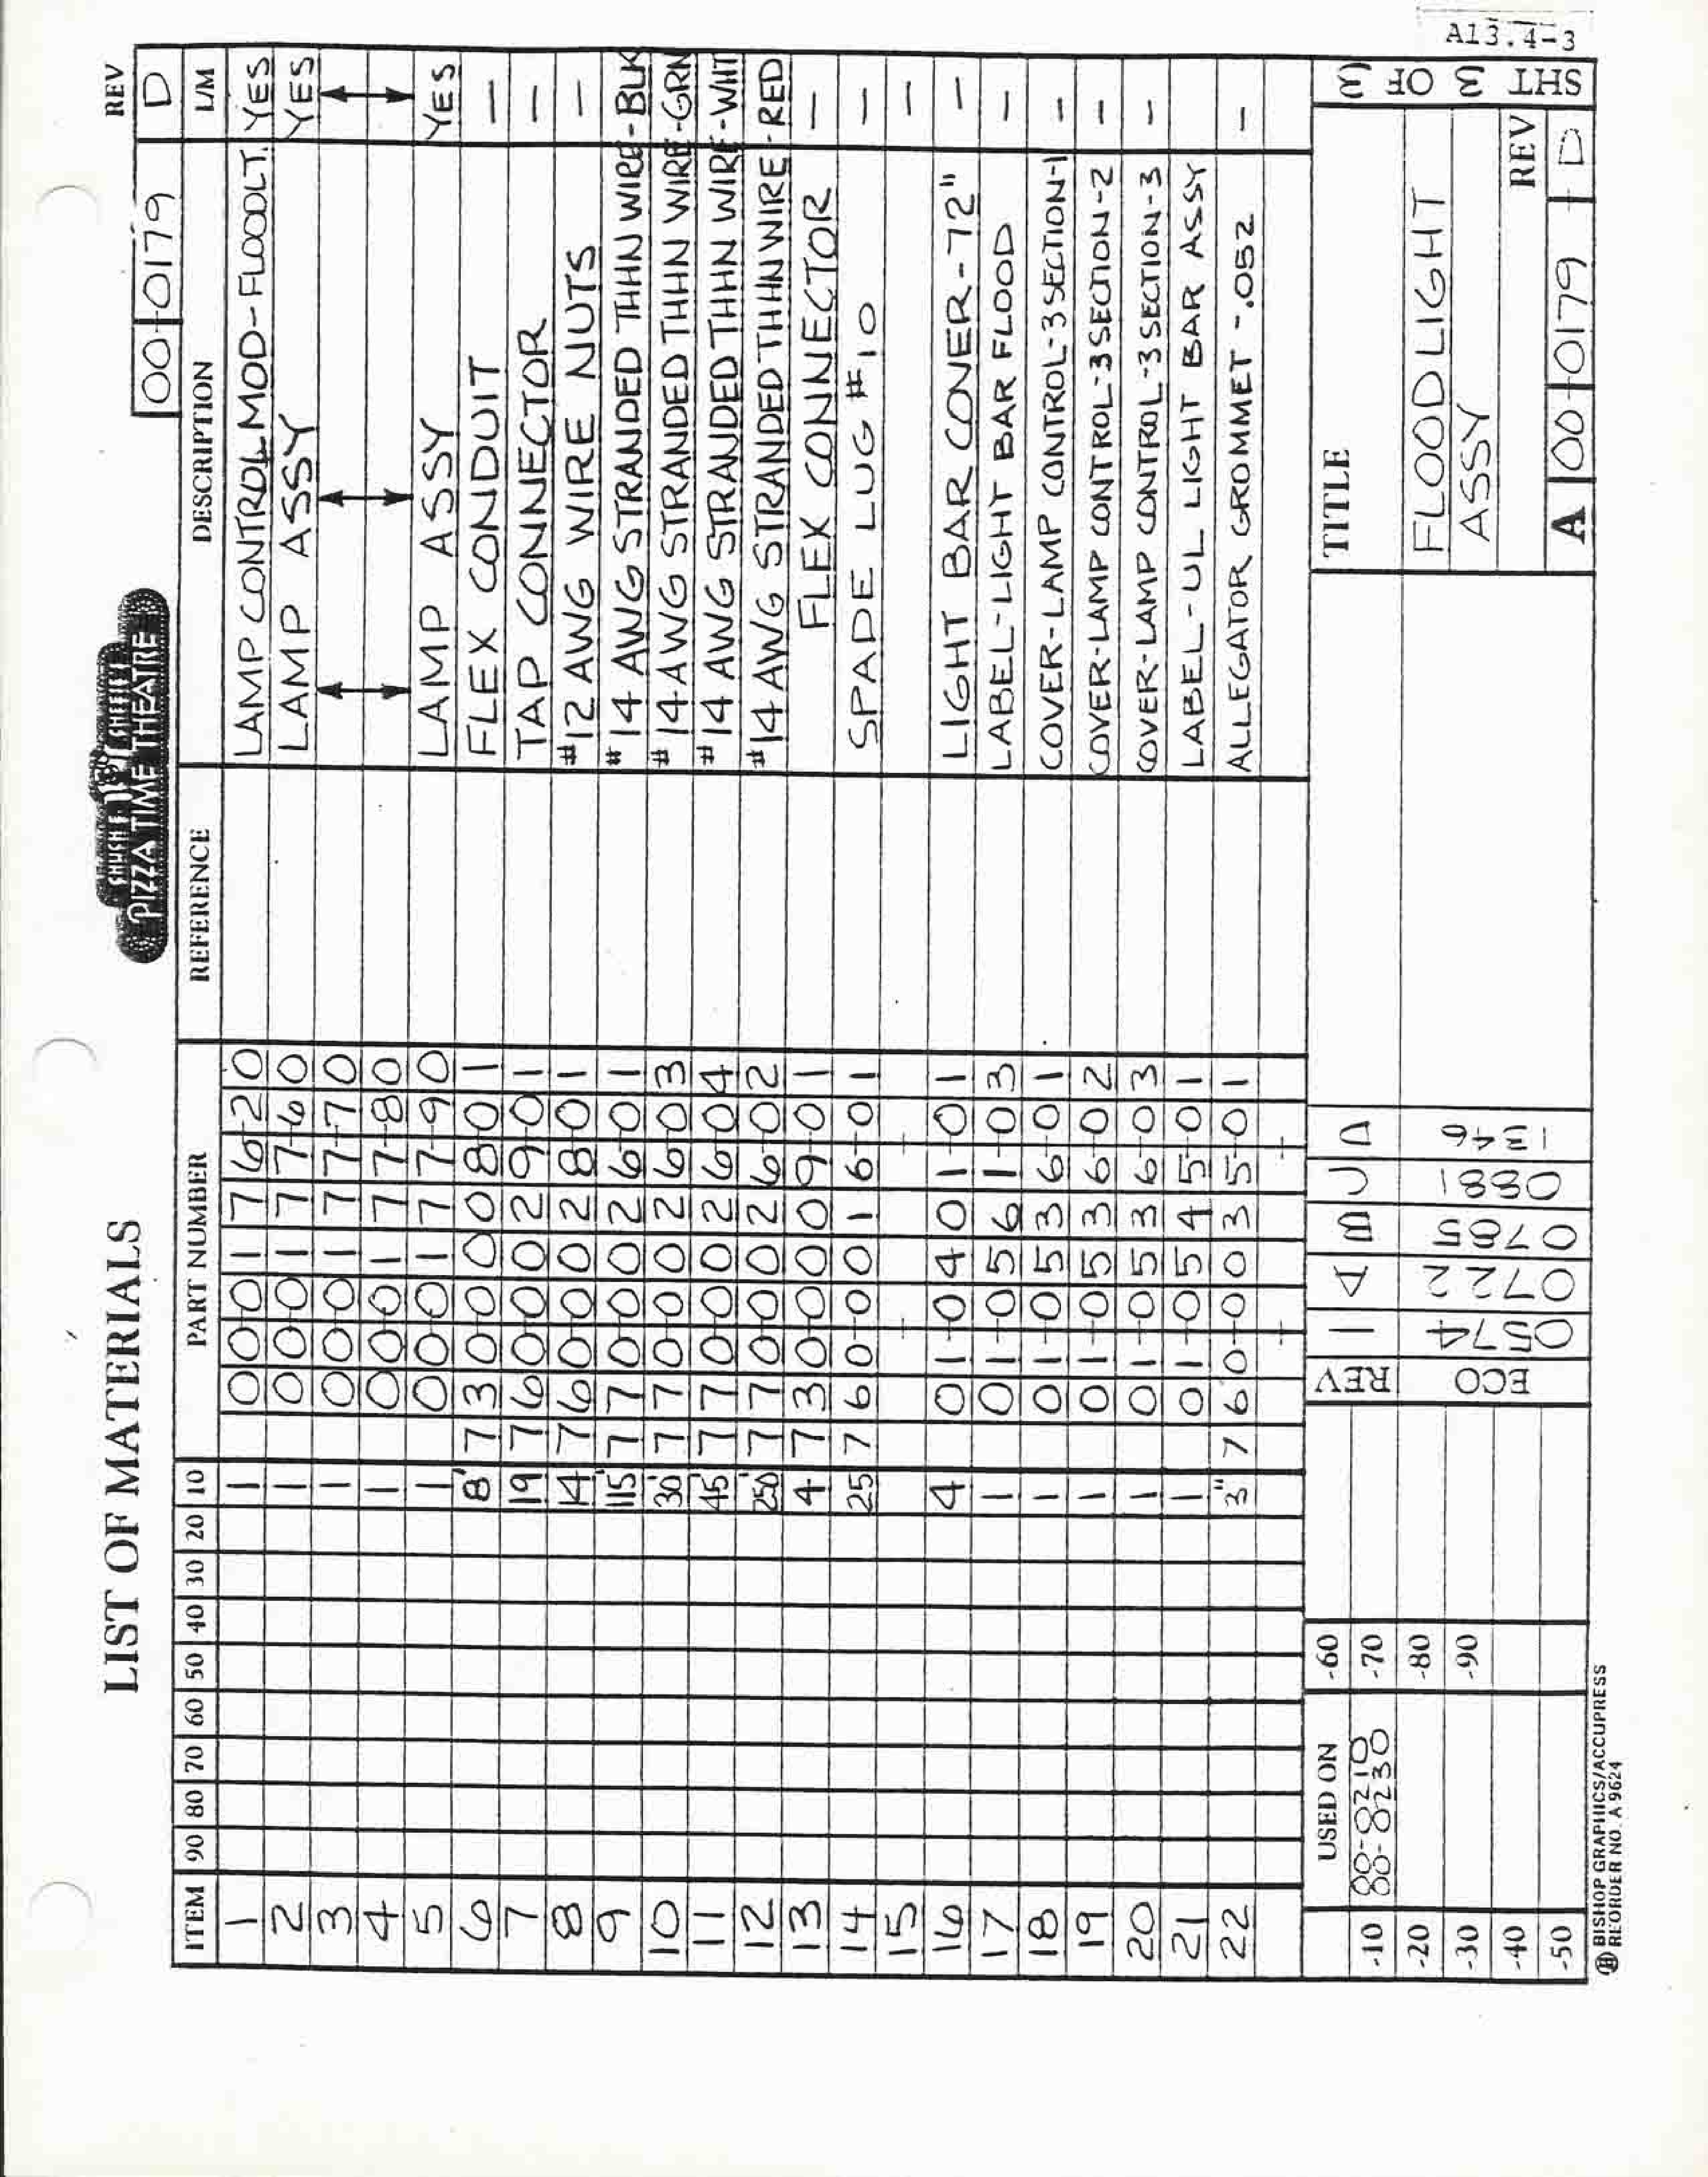 LIST OF MATERIALS
CHUCK E. CHEESE'S
PIZZA TIME THEATRE
REV
00-0179 D
ITEM 90 80 70 60 50 40 30 20 10 PART NUMBER REFERENCE DESCRIPTION L/M
1 1 00-0176-20 LAMP CONTROL MOD-FLOODLT. YES
2 1 00-0177-60 LAMP ASSY YES
3 1 00-0177-70
4 1 00-0177-80
5 1 00-0177-90 LAMP ASSY YES
6 8' 730-0008-01 FLEX CONDUIT —
7 19 760-0029-01 TAP CONNECTOR —
8 14 760-0028-01 #12 AWG WIRE NUTS —
9 115' 770-0026-01 #14 AWG STRANDED THHN WIRE-BLK
10 30' 770-0026-03 #14 AWG STRANDED THHN WIRE-GRN
11 45' 770-0026-04 #14 AWG STRANDED THHN WIRE-WHT
12 250' 770-0026-02 #14 AWG STRANDED THHN WIRE-RED
13 4 730-0009-01 FLEX CONNECTOR —
14 25 760-0016-01 SPADE LUG #10 —
15 —
16 4 01-0401-01 LIGHT BAR CONER-72" —
17 1 01-0561-03 LABEL-LIGHT BAR FLOOD —
18 1 01-0536-01 COVER-LAMP CONTROL-3 SECTION-1 —
19 1 01-0536-02 COVER-LAMP CONTROL-3 SECTION-2 —
20 1 01-0536-03 COVER-LAMP CONTROL-3 SECTION-3 —
21 1 01-0545-01 LABEL-UL LIGHT BAR ASSY
22 3" 760-0035-01 ALLEGATOR GROMMET -.052 —
USED ON
-10 00-8210
00-8230
-20
-30
-40
-50
-60
-70
-80
-90
REV — A B C D
ECO 0574 0722 0785 0881 1346
TITLE
FLOODLIGHT
ASSY
REV
A 00-0179 D
SHT 3 OF 3
A13.4-3
BISHOP GRAPHICS/ACCUPRESS
REORDER NO. A 9624